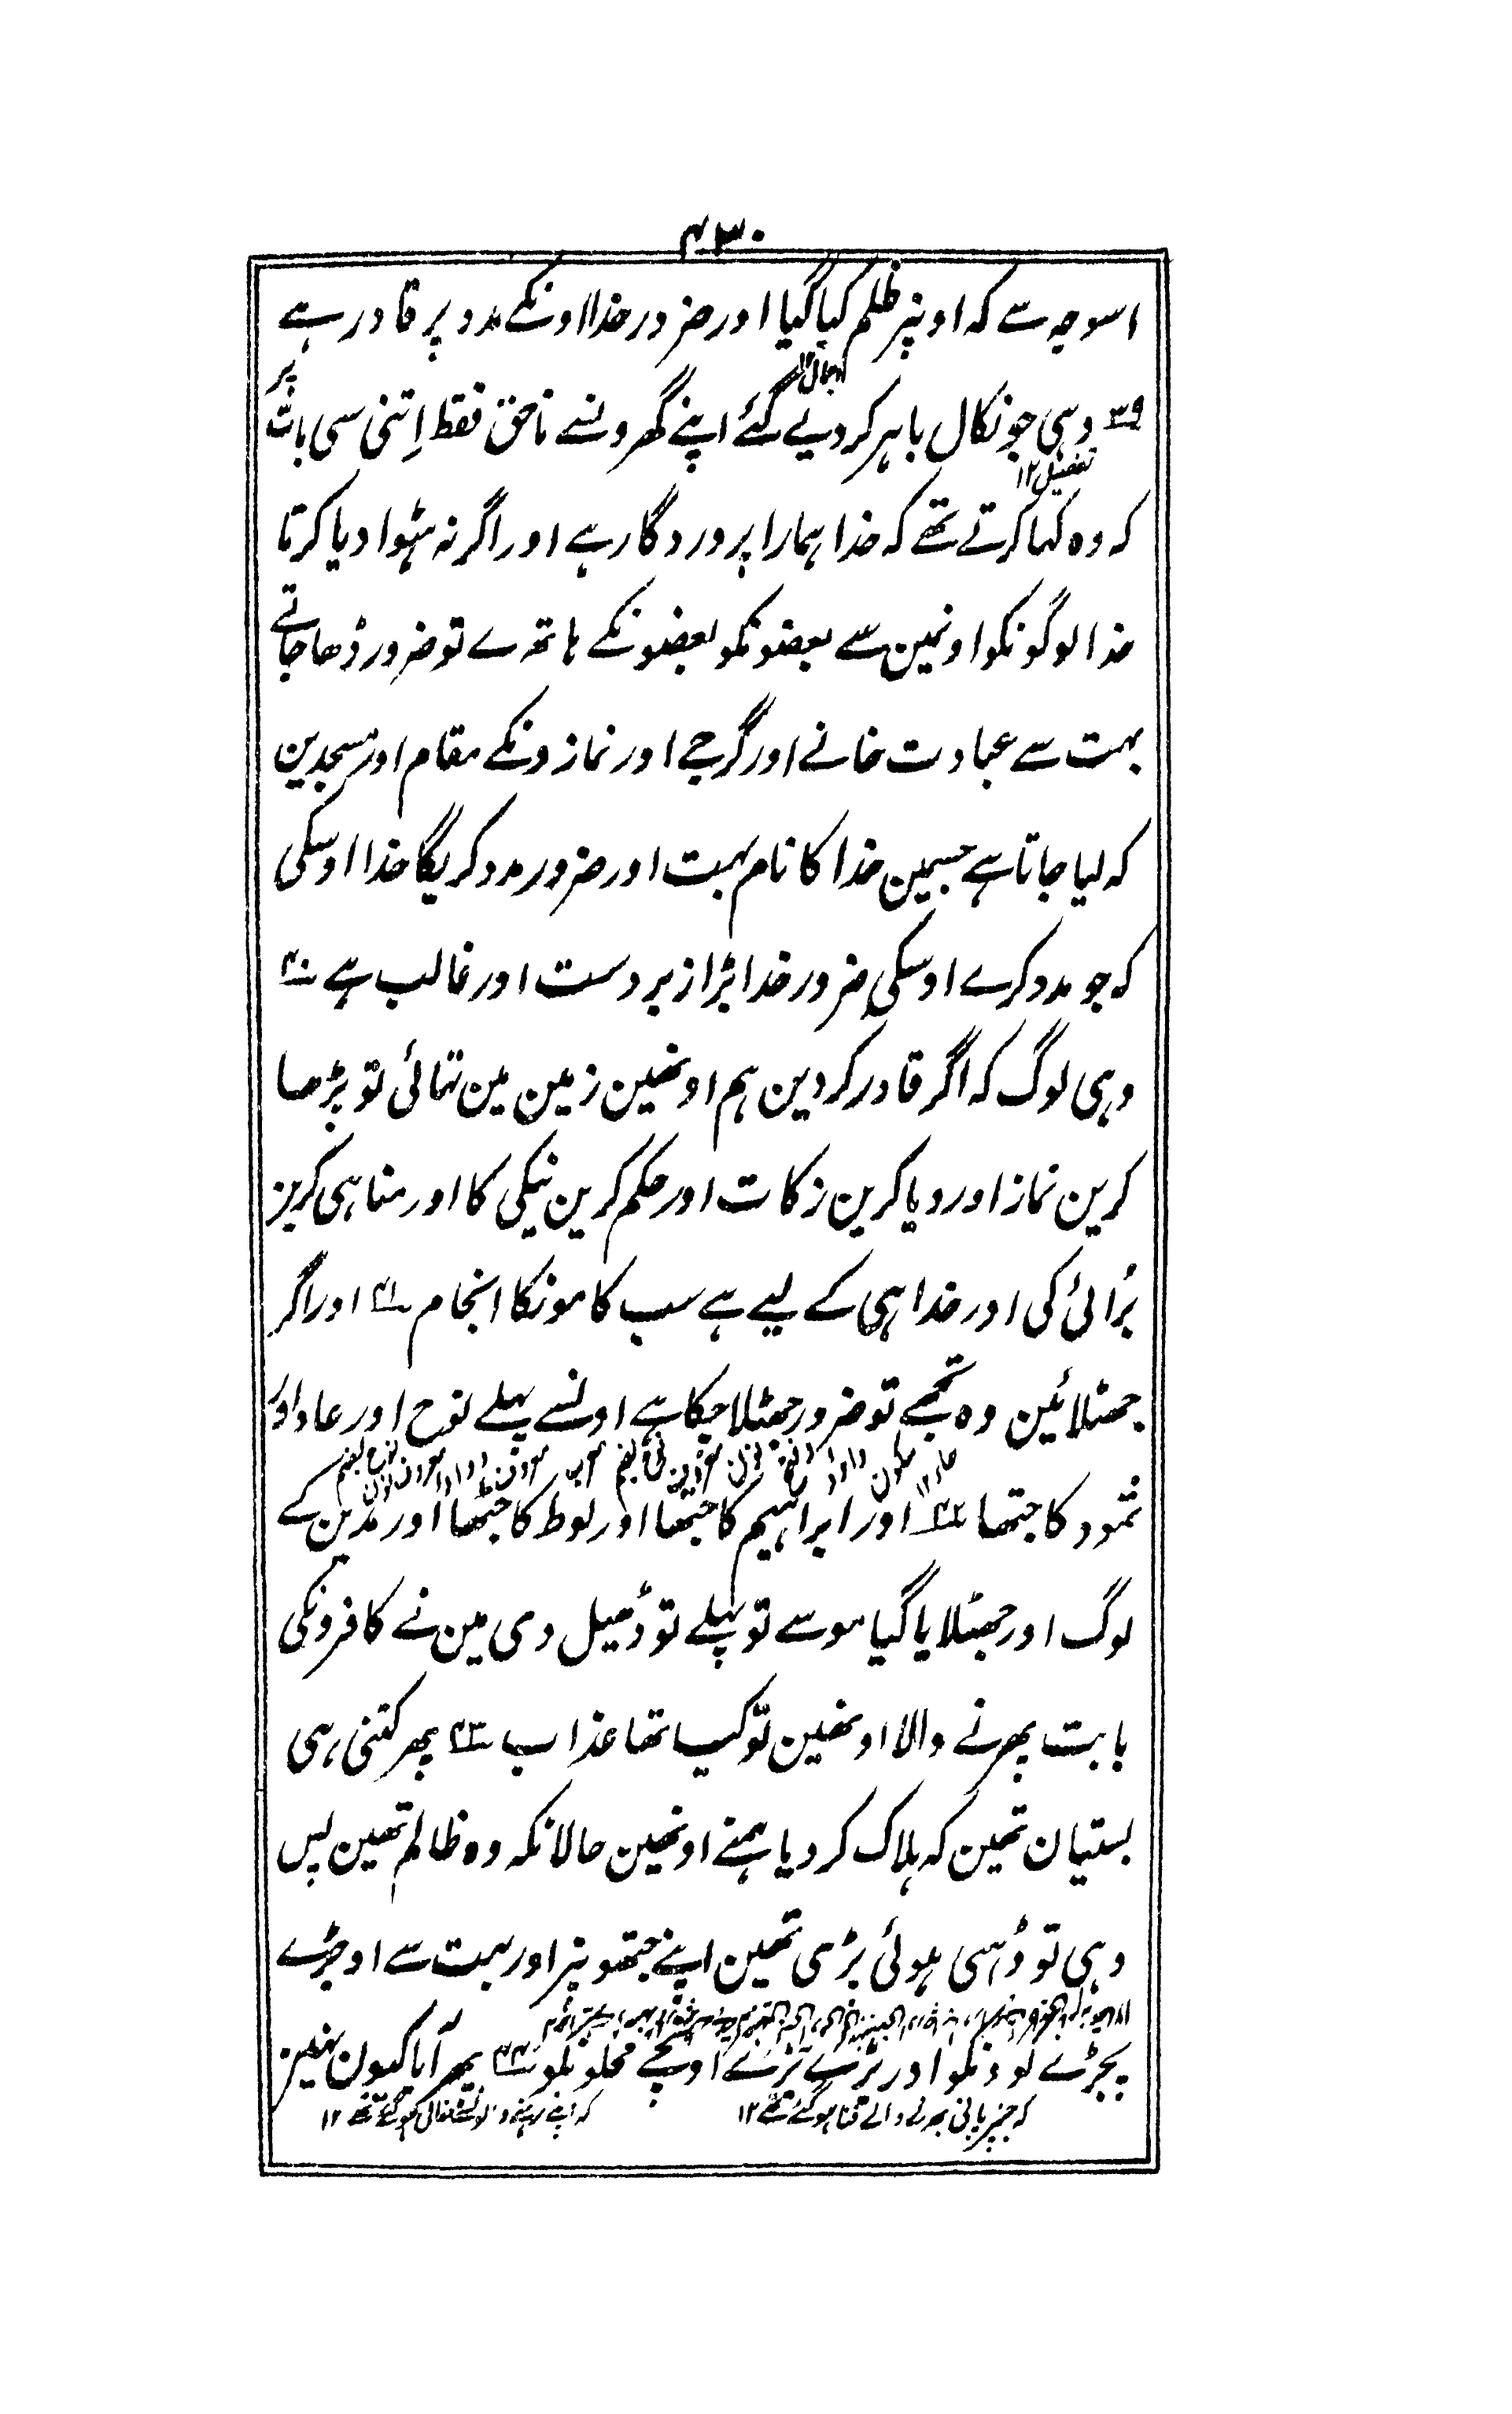 ۴۳۰
اسوجہ سے کہ اونپر ظلم کیا گیا اور ضرور خدا اونکے مدد پر قادر ہے
۳۹ وہی جو نکال باہر کر دیے گئے اپنے گھرونسے ناحق فقط اِتنی سی بات پر
تفصیل ۱۲
کہ وہ کہا کرتے تھے کہ خدا ہمارا پروردگار ہے اور اگر نہ ہٹوا دیا کرتا
خدا لوگونکو اونمین سے بعضونکو بعضونکے ہاتھ سے تو ضرور ڈھا جاتے
بہت سے عبادت خانے اور گرجے اور نمازونکے مقام اور مسجدین
کہ لیا جاتا ہے جسمین خدا کا نام بہت اور ضرور مدد کریگا خدا اوسکی
کہ جو مدد کرے اوسکی ضرور خدا بڑا زبردست اور غالب ہے ۴۰
وہی لوگ کہ اگر قادر کر دین ہم اونھین زمین مین تہائی تو پڑھا
کرین نماز اور دیا کرین زکات اور حکم کرین نیکی کا اور مناہی کرین
بُرائی کی اور خدا ہی کے لیے ہے سب کامونکا انجام ۴۱ اور اگر
جھٹلائین وہ تجھے تو ضرور جھٹلا چکا ہے اونسے پہلے نوح اور عاد اور
ثمود کا جتھا ۴۲ اور ابراہیم کا جتھا اور لوط کا جتھا اور مدین کے
لوگ اور جھٹلایا گیا موسے تو پہلے تو ڈھیل دی مین نے کافرونکی
بابت پھر نے والا اونھین تو کیسا تھا عذاب ۴۳ پھر کتنی ہی
بستیان تھین کہ ہلاک کر دیا ہمنے اونھین حالانکہ وہ ظالم تھین پس
وہی تو ڈہی ہوئی پڑی تھین اپنے چھتونپر اور بہت سے اوجڑے
پجڑے کوونکو اور بڑے بڑے اونچے محلونکو ۴۴ پھر آیا کیون نہین
کہ جنپر پانی بھرنے والے فنا ہو گئے تھے ۱۲ کہ اپنے رہنے والونسے خالی ہو گئے تھے ۱۲